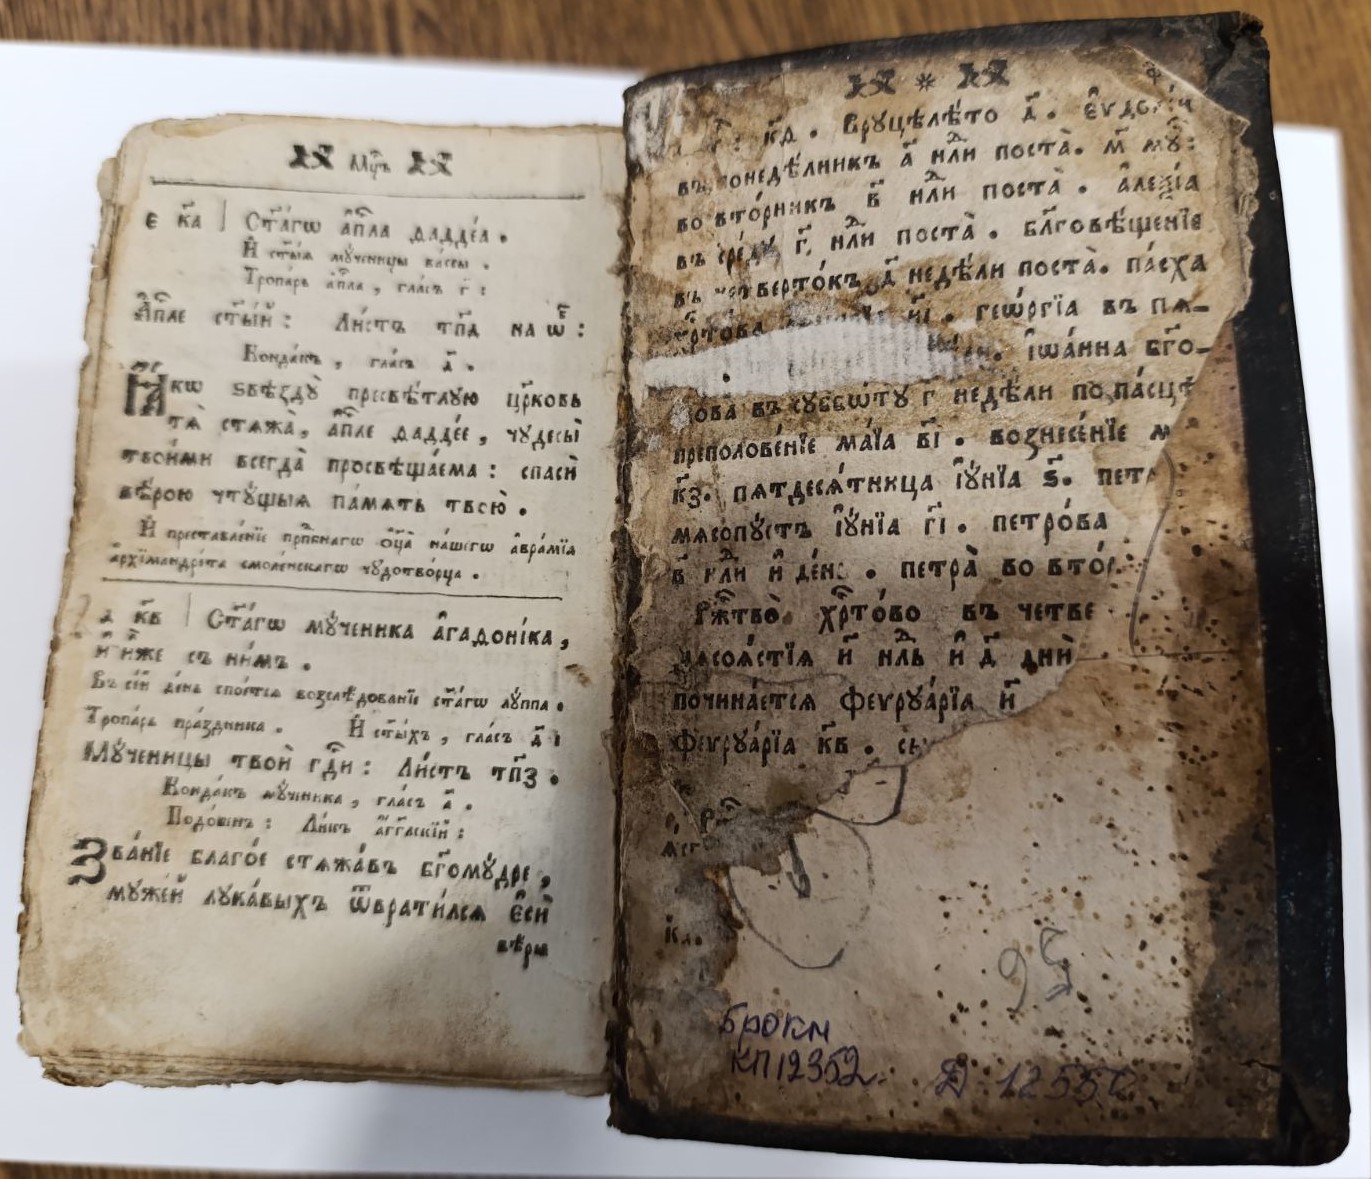 Мцⷭ҇ъ
є к҃а Ст҃а́гѡ а҆пⷭ҇ла ѳадде́а .
И҆ ст҃ы́ѧ мꙋ́ченицы ва́ссы .
Тропа́рь а҆пⷭ҇ла , гла́съ г҃ :
А҆пⷭ҇ле ст҃ы́й : Ли́стъ тп҃д на ѡ҆б̾ :
Конда́къ , гла́съ д҃ .
Ꙗ҆́кѡ ѕвѣздꙋ̀ пресвѣ́тлꙋю цр҃ковь
тѧ̀ стѧжа̀ , а҆пⷭ҇ле ѳадде́е , чꙋдесы̀
твои́ми всегда̀ просвѣща́ема : спасѝ
вѣ́рою чтꙋ́щыѧ па́мѧть твою̀ .
И҆ преставле́нїе прпⷣбнагѡ ѻ҆ц҃а̀ на́шегѡ а҆вра́мїѧ
а҆рхїмандрі́та смоле́нскагѡ чꙋдотво́рца .
к҃в Ст҃а́гѡ мꙋ́ченика а҆гаѳоні́ка ,
и҆ и҆̀же съ ни́мъ .
Въ се́й де́нь пое́тсѧ возслѣ́дованїе ст҃а́гѡ лꙋ́ппа .
Тропа́рь пра́здника . И҆ ст҃ы́хъ , гла́съ д҃ :
Мꙋ́ченицы твоѝ гдⷭ҇и : Ли́стъ тп҃з .
Конда́къ мꙋ́ченика , гла́съ а҃ .
Подо́бенъ : Ли́къ а҆́гг҃лскїй :
Зва́нїе благо́е стѧжа́въ бг҃омꙋ́дре ,
мꙋже́й лꙋка́выхъ ѿврати́лсѧ є҆сѝ
вѣ́ры
к҃д . Врꙋцѣлѣ́то д҃ .
въ понедѣ́лникъ а҃ нⷣли поста̀ . м҃ мꙋ҃ :
во вто́рникъ в҃ нⷣли поста̀ . а҆леѯі́а
въ сре́дꙋ г҃ нⷣли поста̀ . блг҃овѣ́щенїе
въ четверто́къ д҃ недѣ́ли поста̀ . па́сха
геѡ́ргїа въ пѧ-
і҆ѡа́нна бг҃о-
въ сꙋббѡ́тꙋ г҃ недѣ́ли по па́сцѣ
преполове́нїе ма́їа в҃і . вознесе́нїе м
к҃з . пѧтдесѧ́тница і҆ꙋ́нїа ѕ҃ . петр
мѧсопꙋ́стъ і҆ꙋ́нїа г҃і . петро́ва
в҃ нⷣли и҆ де́нь . петра̀ во вто́р
Ржⷭ҇тво̀ хрⷭ҇то́во въ четве
мѧсоѧ́стїѧ и҃ нⷣль и҆ д҃ днѝ
починае́тсѧ феѵрꙋа́рїа и҃
феѵрꙋа́рїа к҃в .
95
Брокм
КП12352